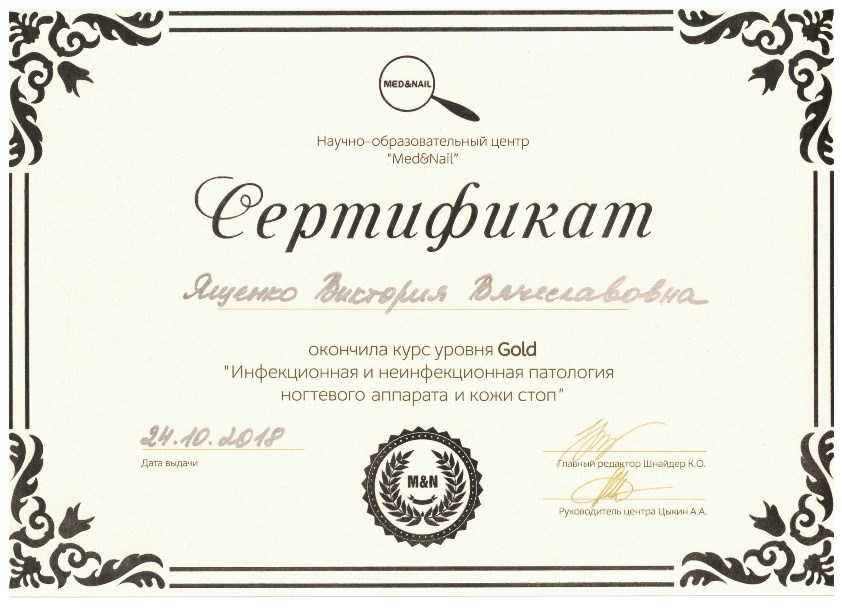 MED&NAIL
Научно-образовательный центр
"Med&Nail"
Сертификат
Ященко Виктория Вячеславовна
окончила курс уровня Gold
"Инфекционная и неинфекционная патология
ногтевого аппарата и кожи стоп"
24.10.2018
Дата выдачи
M&N
Главный редактор Шнайдер К.О.
Руководитель центра Цыкин А.А.